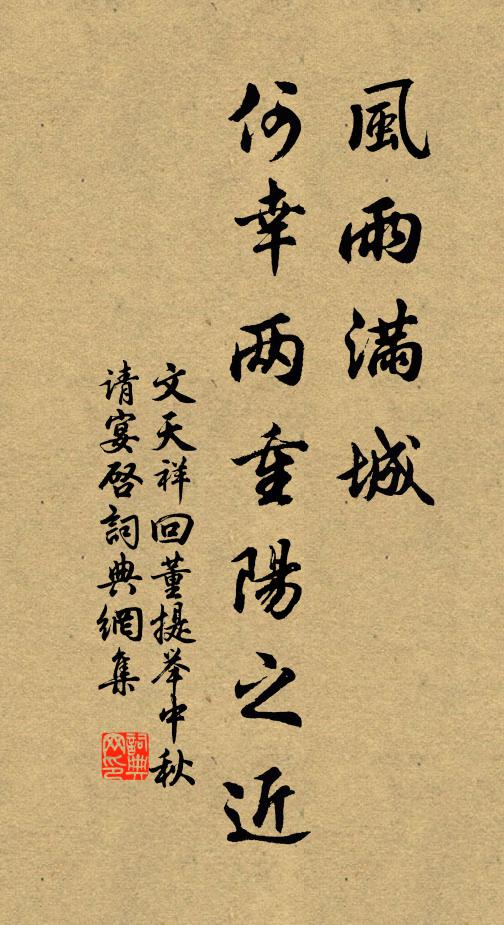 風雨滿城
何幸两重陽之近
文天祥回董提举中秋
请宴启詞典網集
詞典
网印